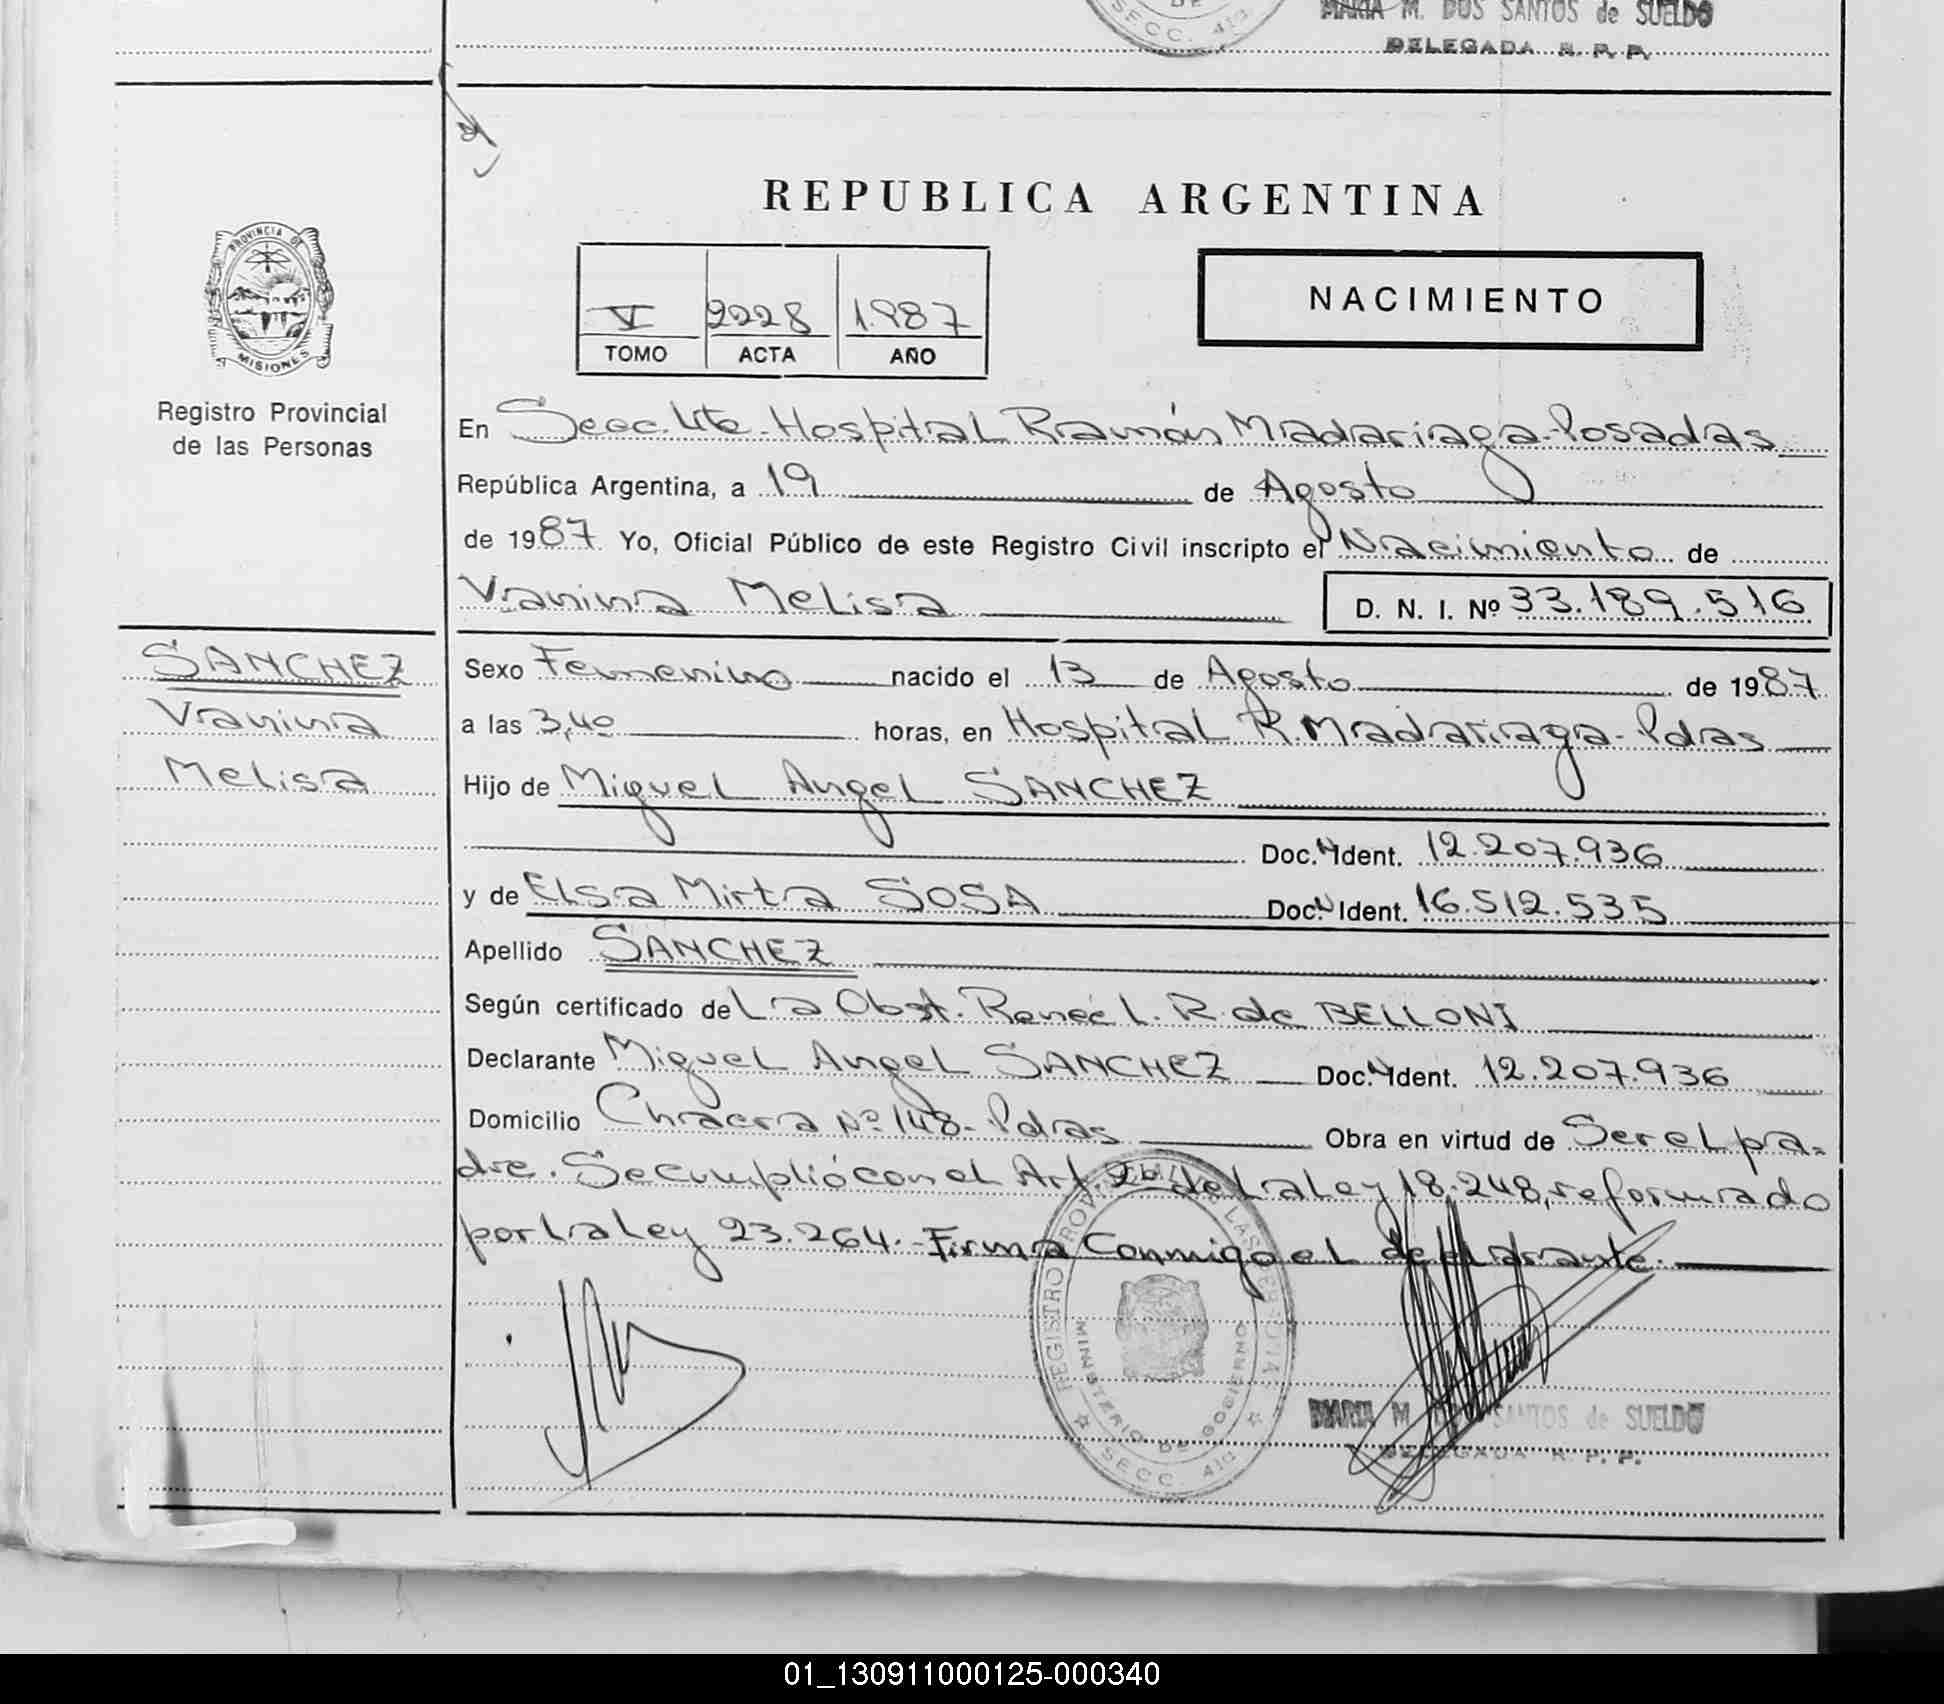 MARIA M. DOS SANTOS de SUELDO
DELEGADA R. P. P.
SECC. 4ta
REPUBLICA ARGENTINA
PROVINCIA DE
MISIONES
Registro Provincial
de las Personas
V 2228 1.987
TOMO ACTA AÑO
NACIMIENTO
En Secc. 4ta. Hospital Ramón Madariaga-Posadas
República Argentina, a 19 de Agosto
de 1987 Yo, Oficial Público de este Registro Civil inscripto el Nacimiento de
Vanina Melisa D. N. I. Nº 33.189.516
SANCHEZ
Vanina
Melisa
Sexo Femenino nacido el 13 de Agosto de 1987
a las 3,40 horas, en Hospital R. Madariaga-Pdas
Hijo de Miguel Angel SANCHEZ
Doc. N Ident. 12.207.936
y de Elsa Mirta SOSA Doc. N Ident. 16.512.535
Apellido SANCHEZ
Según certificado de La Obst. Reneé L. R. de BELLONI
Declarante Miguel Angel SANCHEZ Doc. N Ident. 12.207.936
Domicilio Chacra Nº 148- Pdas Obra en virtud de Ser el pa-
dre. Se cumplió con el Art. 2º de La Ley 18.248, reformado
por La Ley 23.264.- Firma Conmigo el declarante.
REGISTRO PROV. DE LAS PERSONAS
MINISTERIO DE GOBIERNO
SECC. 4ta
MARIA M. DOS SANTOS de SUELDO
DELEGADA R. P. P.
01_130911000125-000340